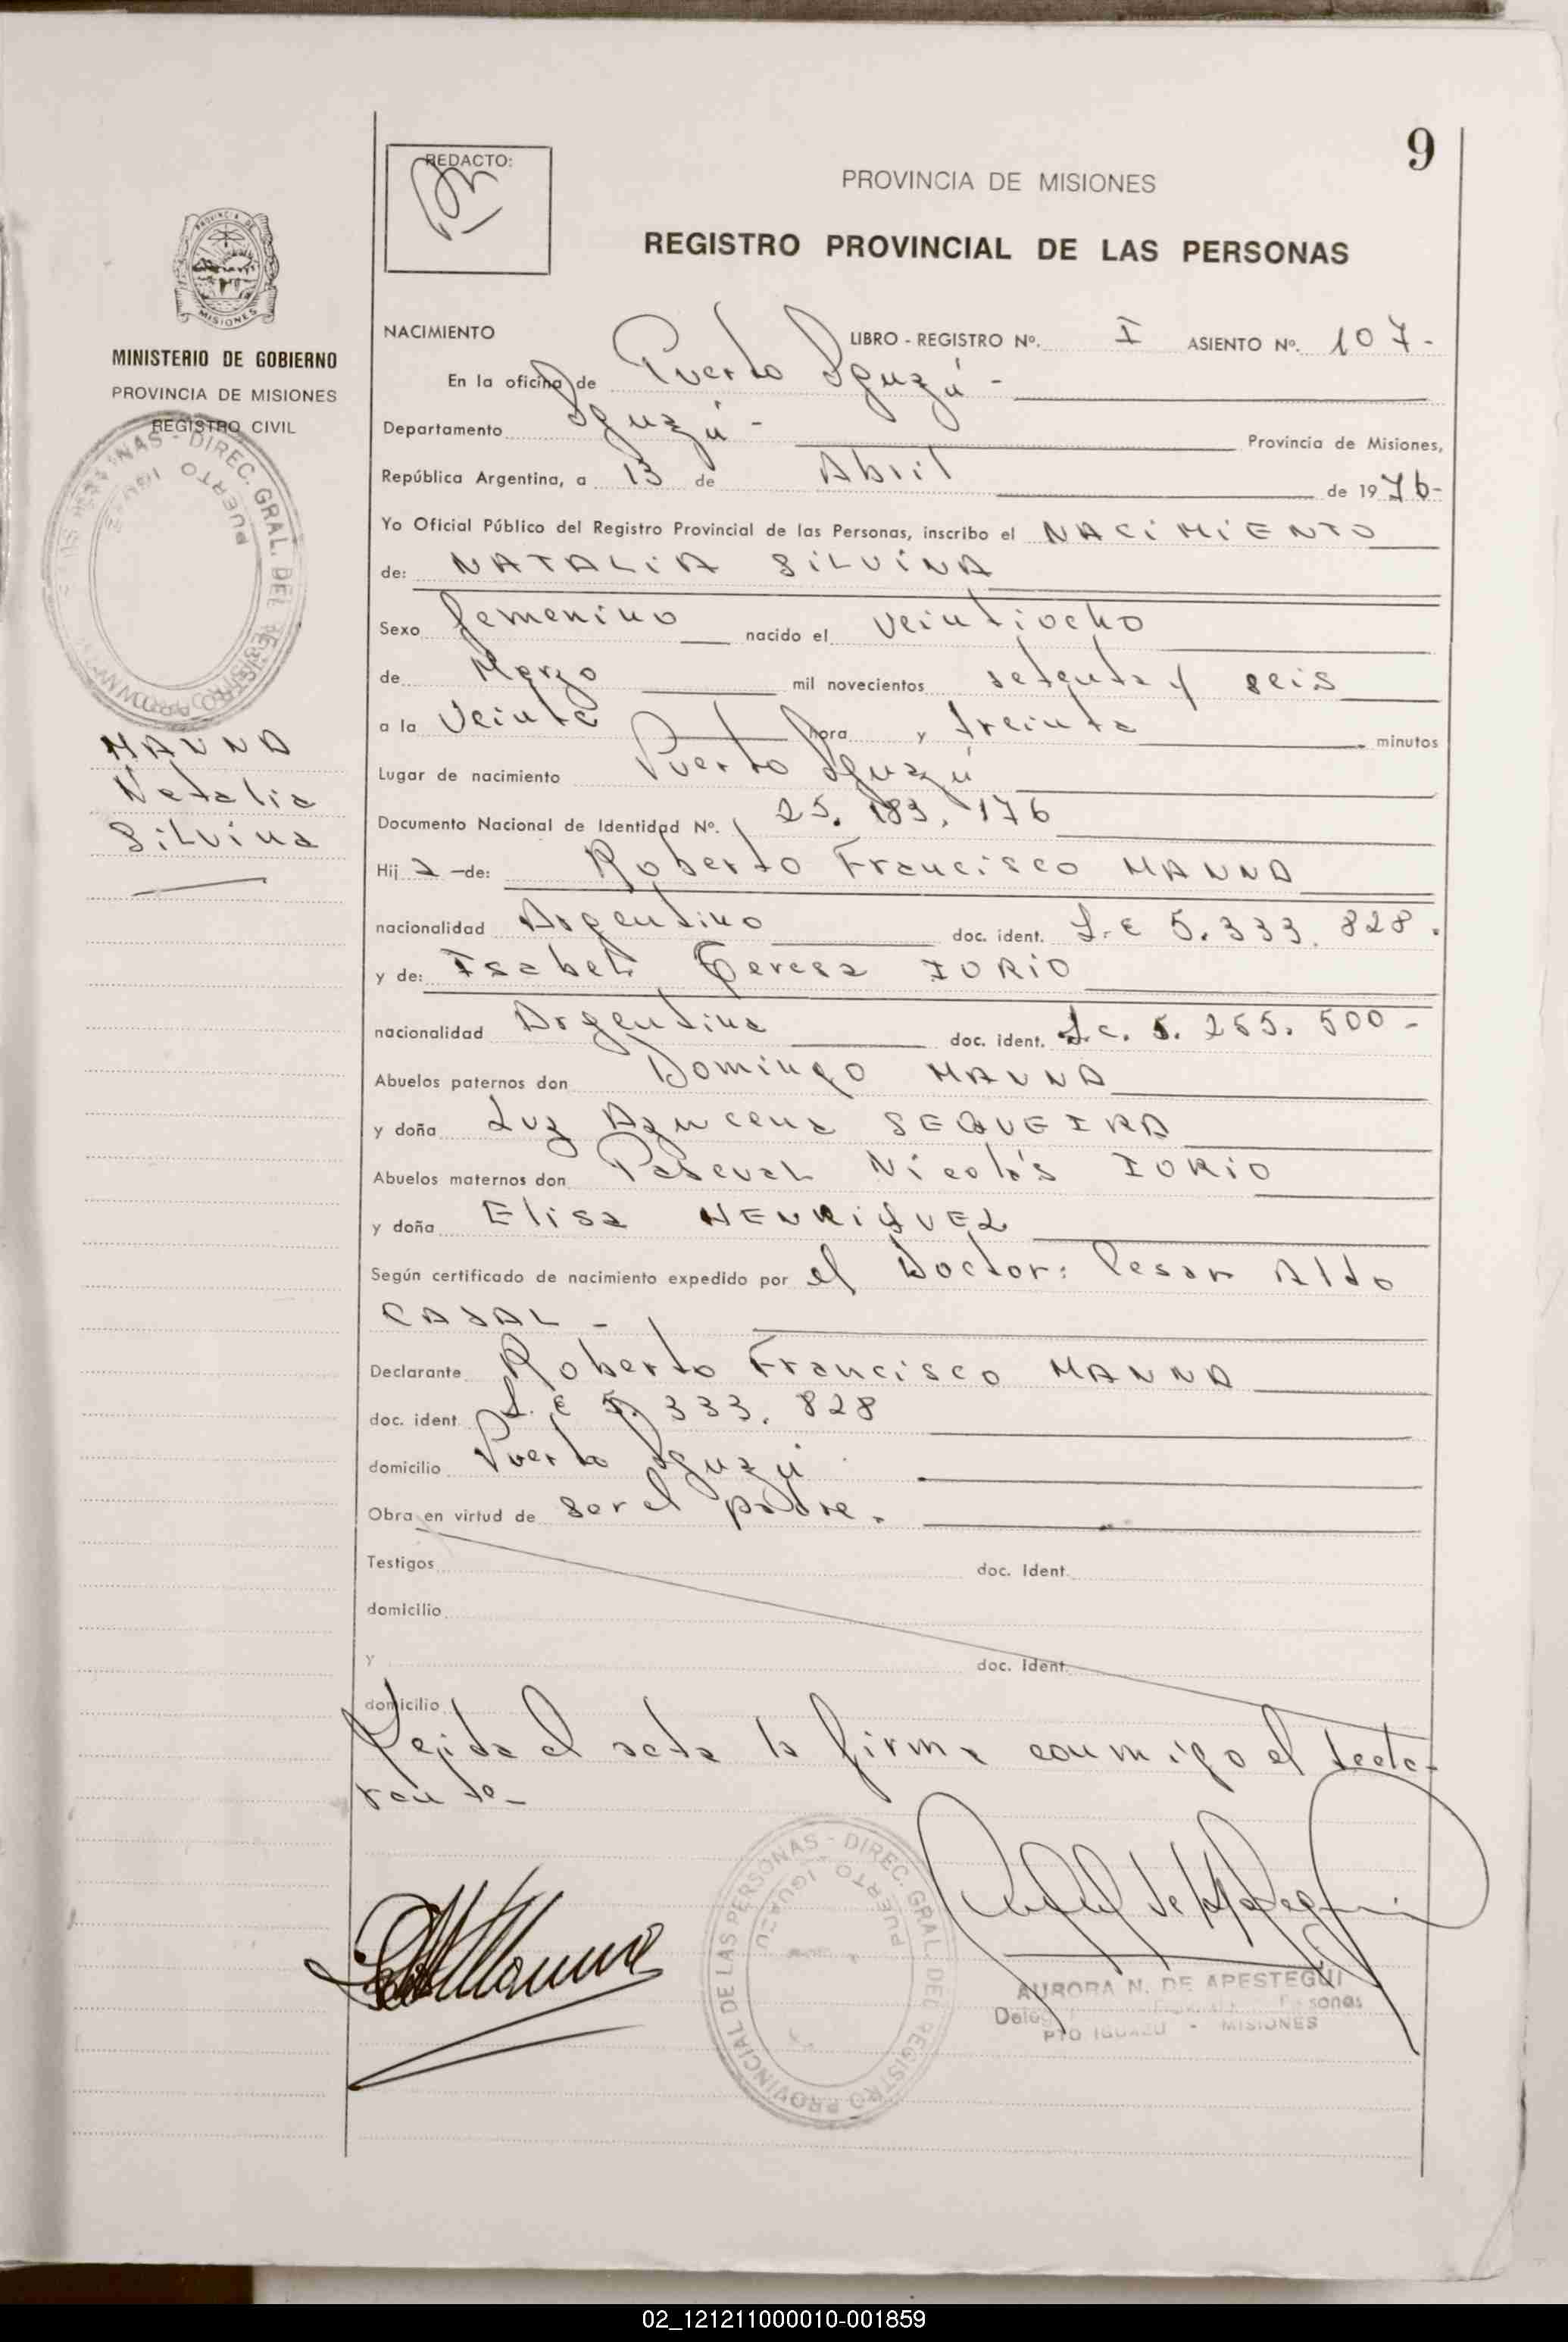 9
REDACTO:
PROVINCIA DE MISIONES
REGISTRO PROVINCIAL DE LAS PERSONAS
MINISTERIO DE GOBIERNO
PROVINCIA DE MISIONES
REGISTRO CIVIL
MANNA
Natalia
Silvina
NACIMIENTO LIBRO - REGISTRO Nº. I ASIENTO Nº. 107-
En la oficina de Puerto Iguazú -
Departamento Iguazú - Provincia de Misiones,
República Argentina, a 13 de Abril de 1976-
Yo Oficial Público del Registro Provincial de las Personas, inscribo el NACIMIENTO
de: NATALIA SILVINA
Sexo femenino nacido el veintiocho
de Marzo mil novecientos setenta y seis
a la veinte hora y treinta minutos
Lugar de nacimiento Puerto Iguazú
Documento Nacional de Identidad Nº. 25.183.176
Hij a -de: Roberto Francisco MANNA
nacionalidad Argentino doc. ident. L.E 5.333.828.
y de: Isabel Teresa IORIO
nacionalidad Argentina doc. ident. L.C. 5.265.500-
Abuelos paternos don Domingo MANNA
y doña Luz Azucena SEQUEIRA
Abuelos maternos don Pascual Nicolás IORIO
y doña Elisa HENRIQUEZ
Según certificado de nacimiento expedido por el Doctor: Cesar Aldo
CASAL -
Declarante Roberto Francisco MANNA
doc. ident. L.E 5.333.828
domicilio Puerto Iguazú
Obra en virtud de ser el padre.
Testigos doc. Ident.
domicilio
Y doc. Ident.
domicilio
Leída el acta la firma conmigo el decla-
rante-
DIREC. GRAL. DEL REGISTRO PROVINCIAL DE LAS PERSONAS -
PUERTO IGUAZU
AURORA N. DE APESTEGUI
PTO IGUAZU - MISIONES
02_121211000010-001859